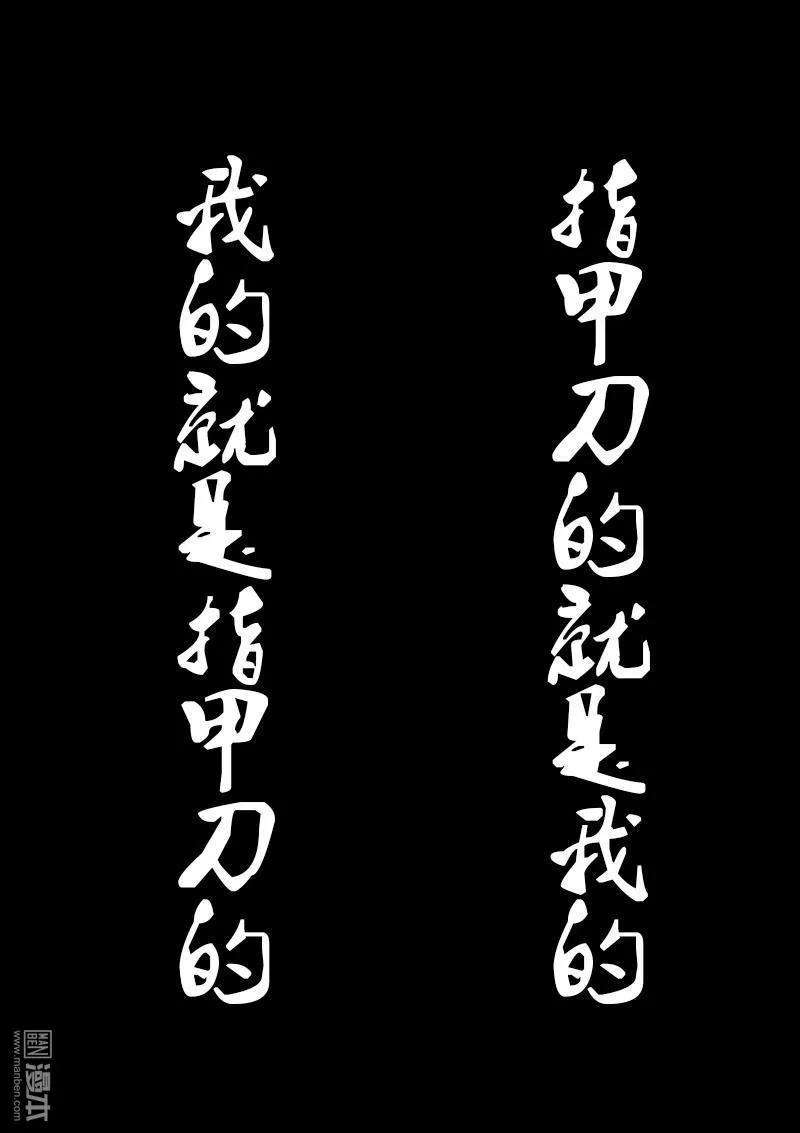 指甲刀的就是我的
我的就是指甲刀的
MAN
BEN
漫本
www.manben.com